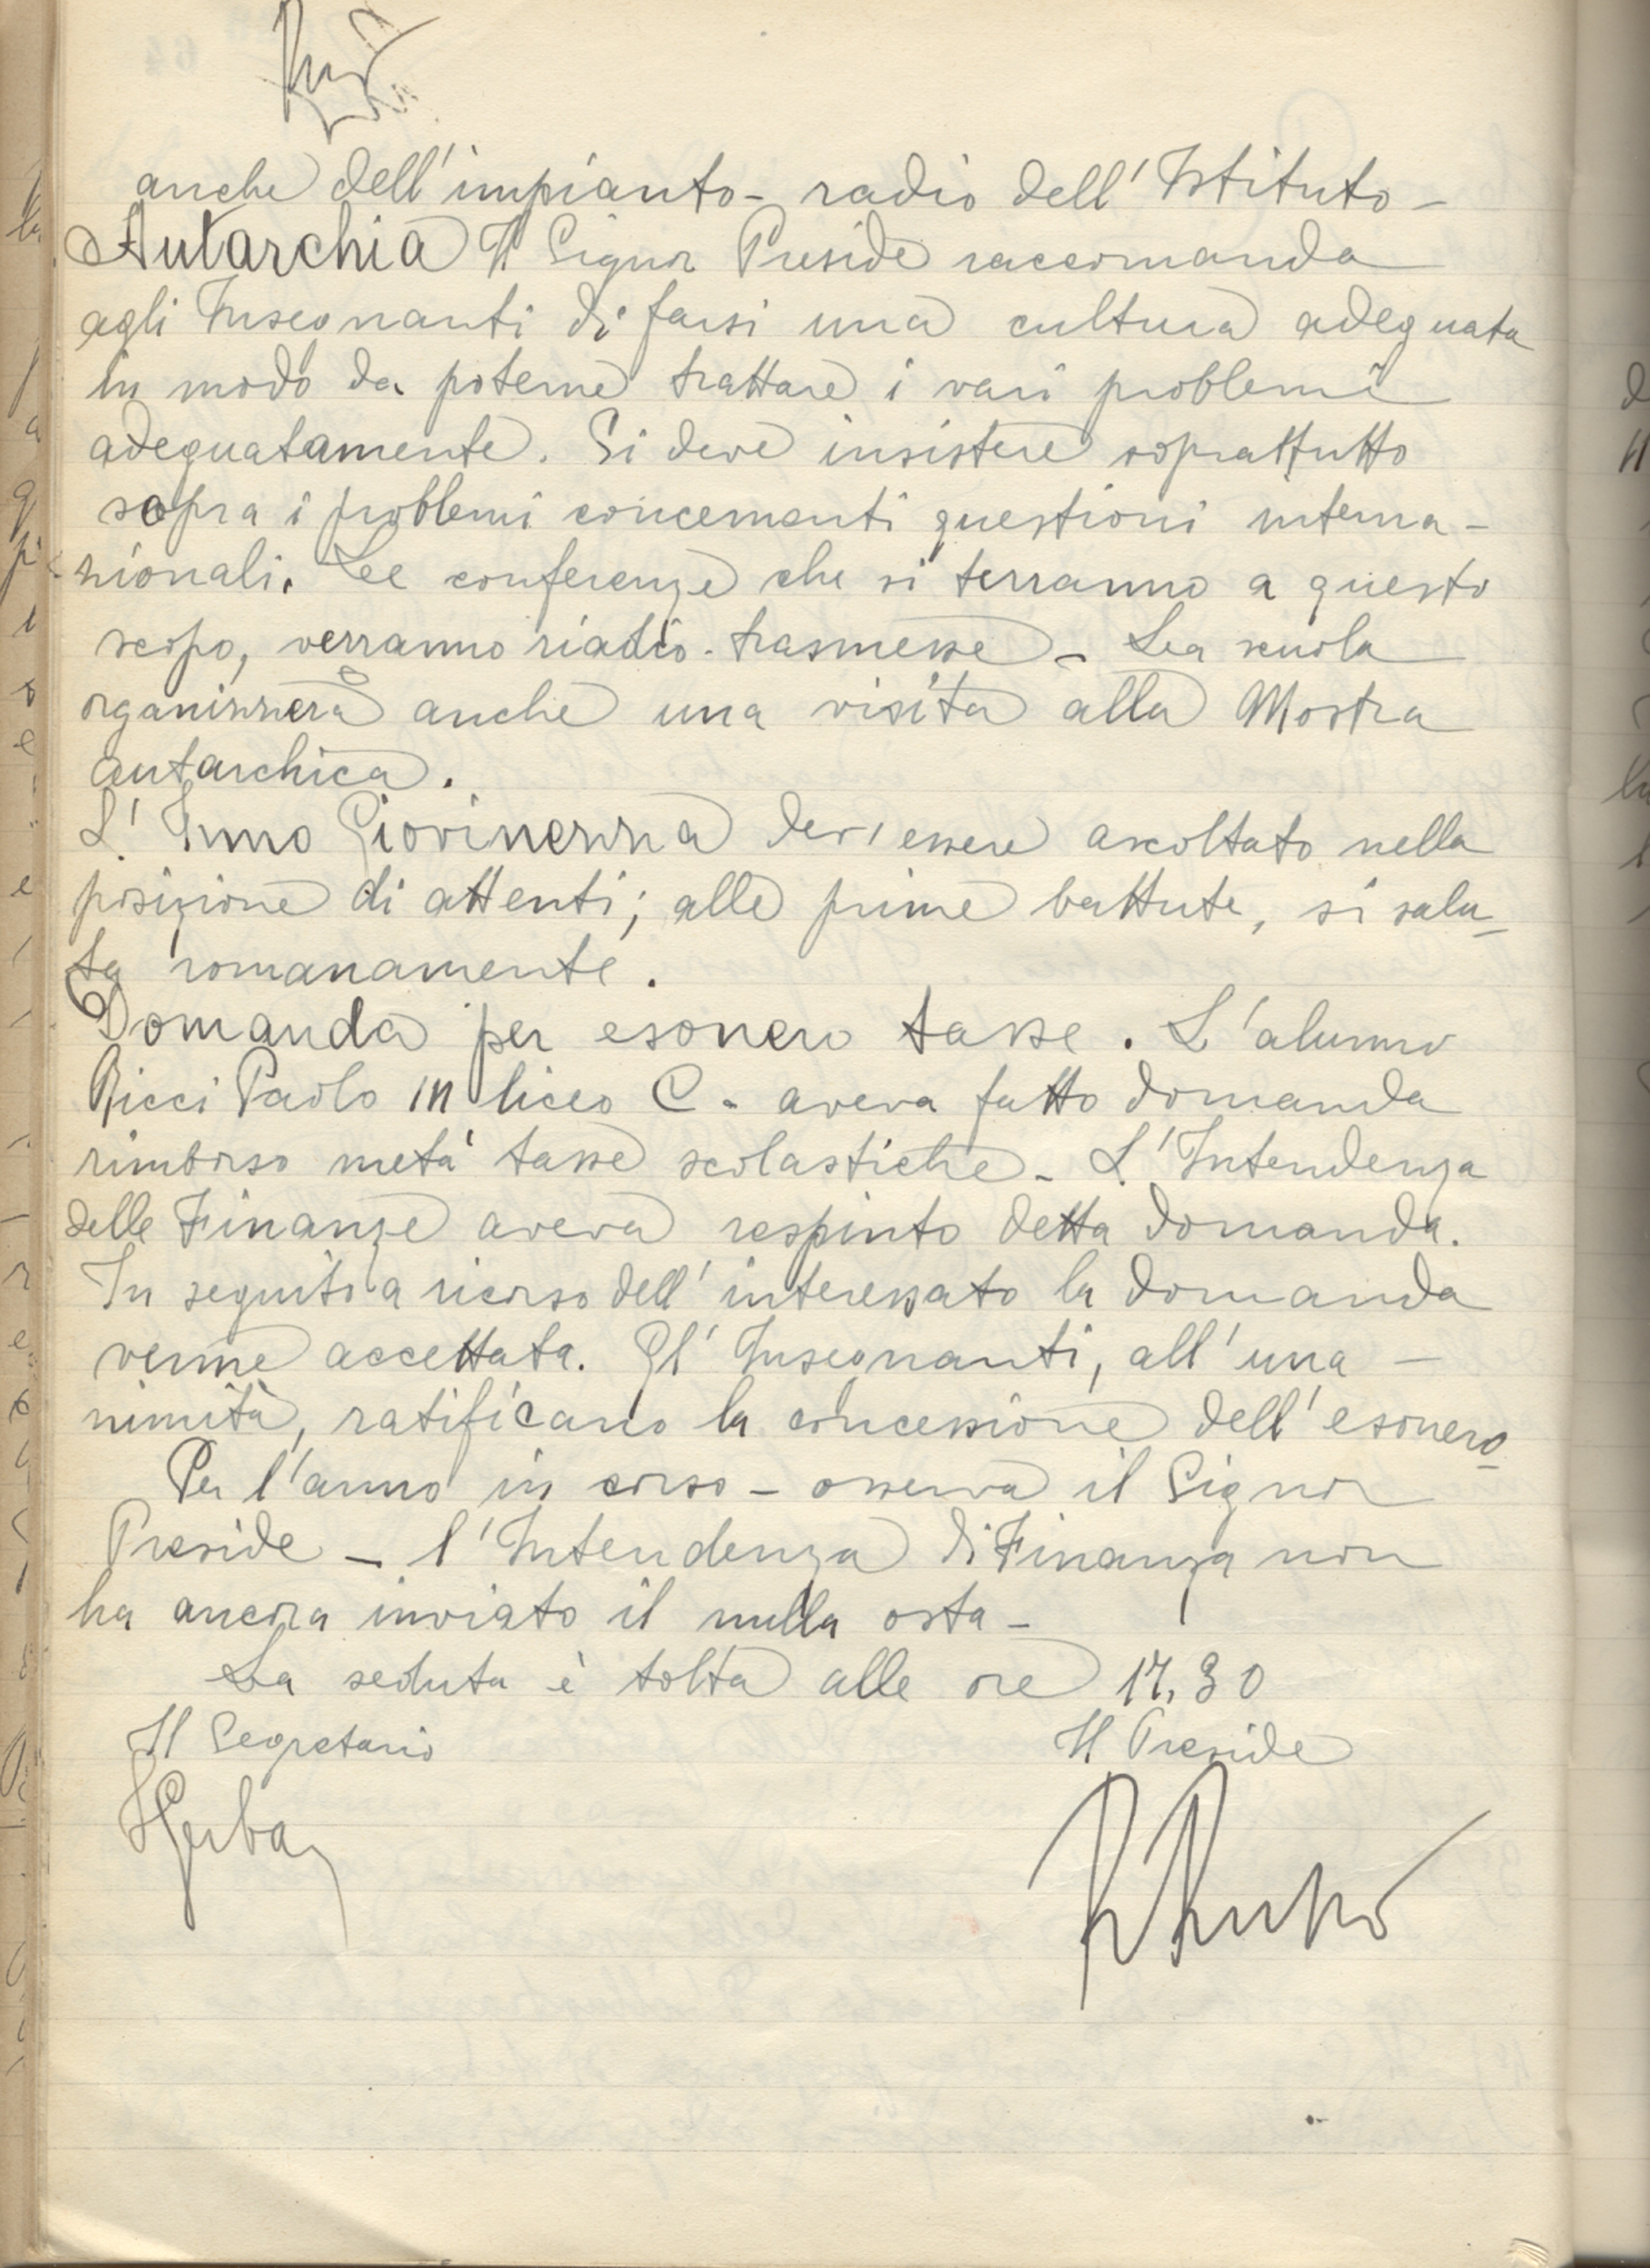 anche dell'impianto - radio dell'Istituto -
Autarchia Il Signor Preside raccomanda
agli Insegnanti di farsi una cultura adeguata
in modo da poterne trattare i vari problemi
adeguatamente. Si deve insistere soprattutto
sopra i problemi concernenti questioni interna-
zionali. Le conferenze che si terranno a questo
scopo, verranno riadio-trasmesse - La scuola
organizzerà anche una visita alla Mostra
autarchica.
L'Inno Giovinezza dev'essere ascoltato nella
posizione di attenti; alle prime battute, si salu-
ta romanamente.
Domanda per esonero tasse. L'alunno
Ricci Paolo III liceo C - aveva fatto domanda
rimborso metà tasse scolastiche - L'Intendenza
delle Finanze aveva respinto detta domanda.
In seguito a ricorso dell'interessato la domanda
venne accettata. Gl'Insegnanti, all'una-
nimità, ratificano la concessione dell'esonero
Per l'anno in corso - osserva il Signor
Preside - l'Intendenza di Finanza non
ha ancora inviato il nulla osta -
La seduta è tolta alle ore 17.30
Il Segretario Il Preside